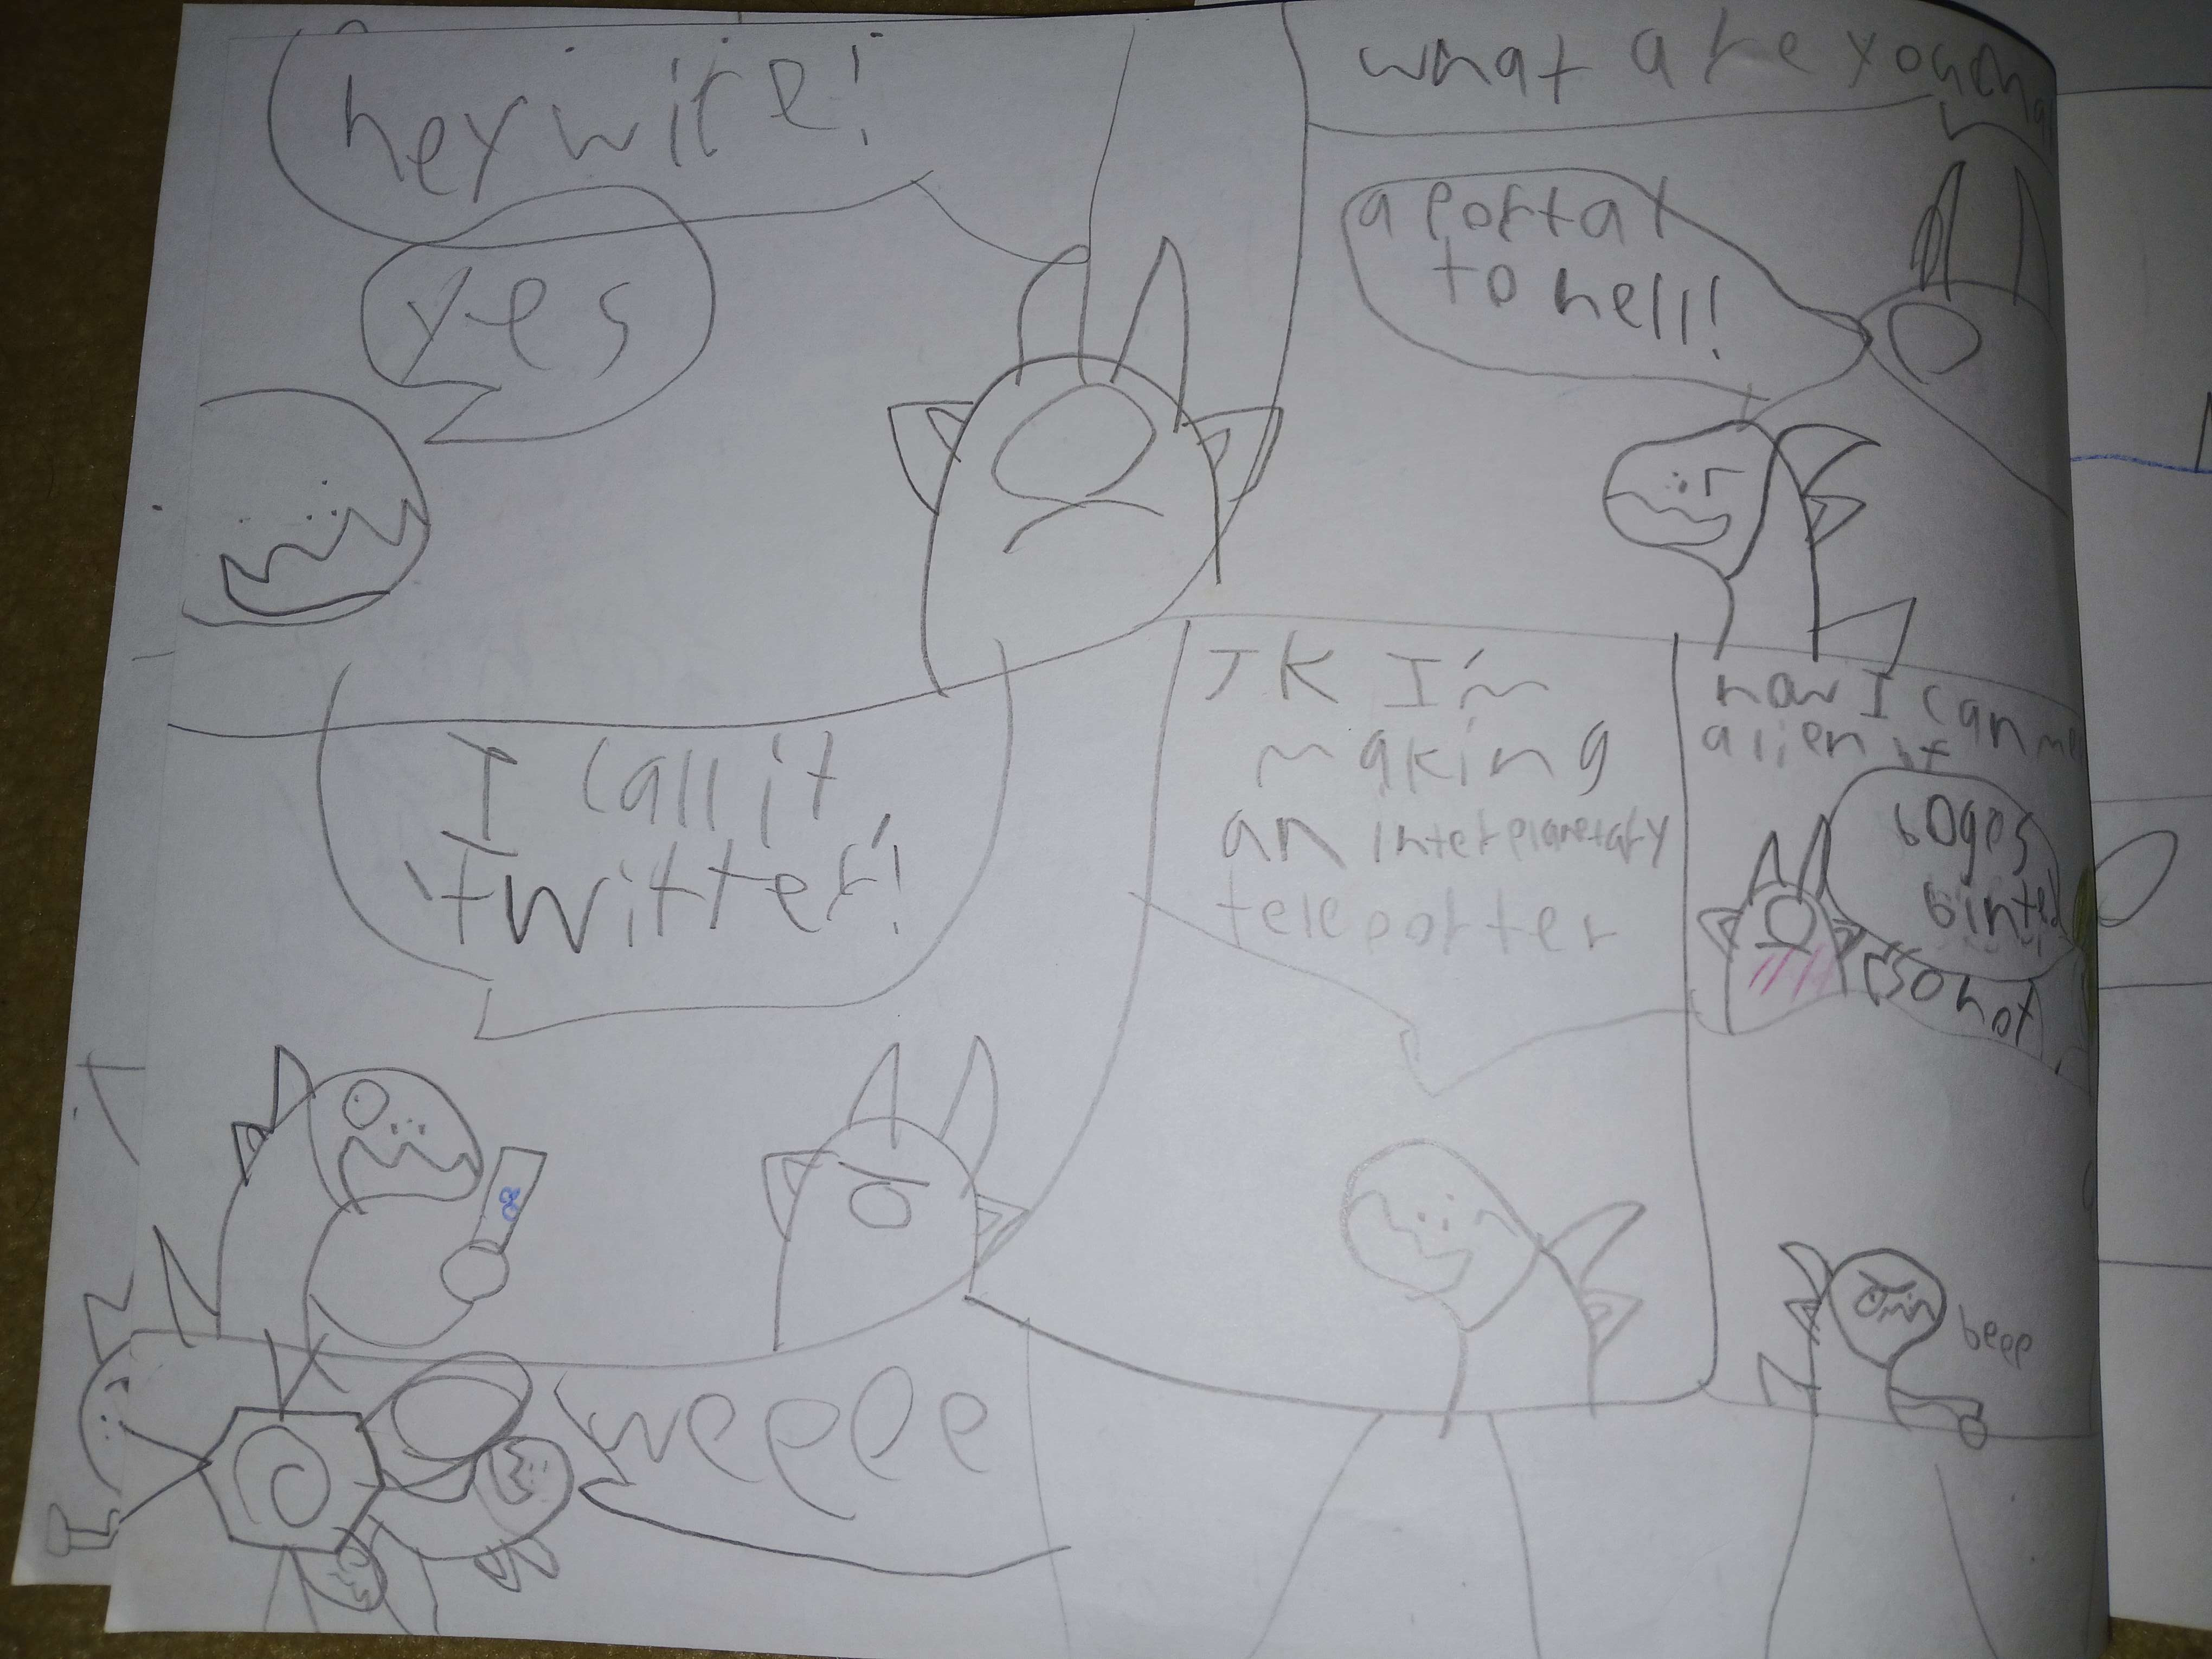 hey wire!
yes
what are you
a portal
to hell!
I call it
'twitter'!
JK I'm
making
an interplanetary
teleporter
now I can
alien
(so hot
beep
weeee